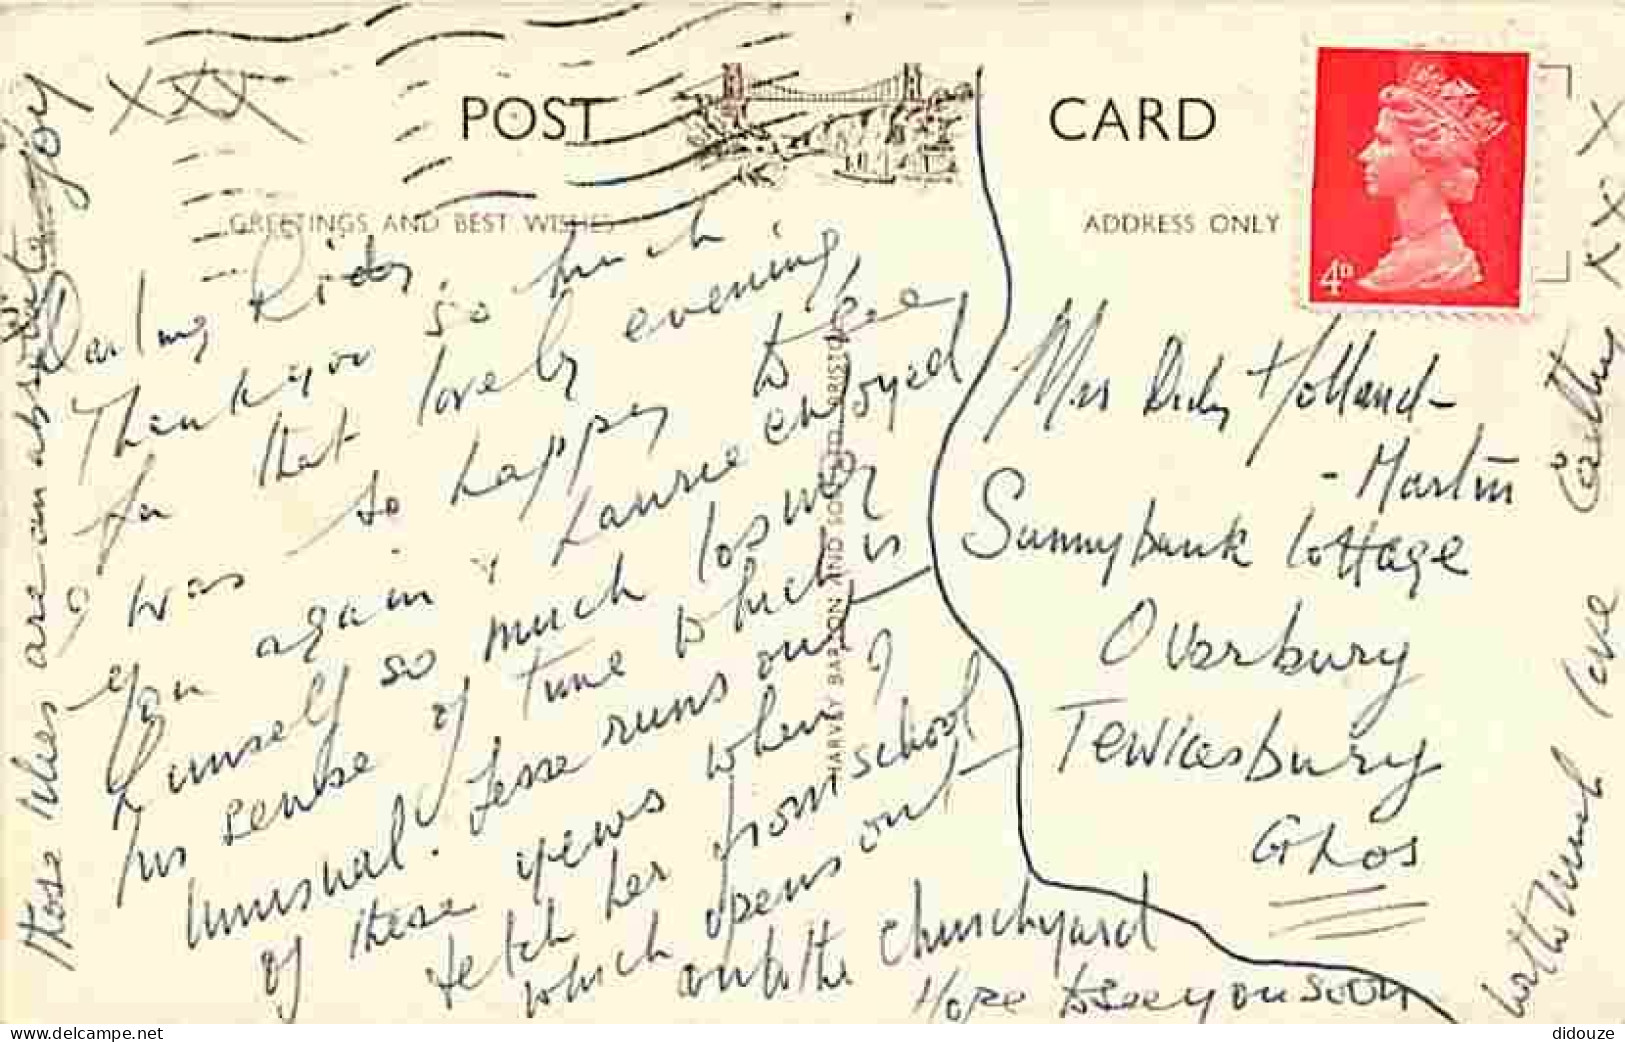 POST CARD
GREETINGS AND BEST WISHES
ADDRESS ONLY
4D
XXX
Darling
Thank you so much
for that lovely evening,
I was so happy to see
you again & Laurie enjoyed
himself so much
his sense of time which is
unusual. Jesse runs out
of these when I
fetch her from school
which opens out
onto the churchyard
Hope to see you soon
with much love
Cathy
X
XX
Those are an absolute joy
XXX
Mrs Holland-
-Martin
Sunnybank Cottage
Overbury
Tewkesbury
Glos
HARVEY BARTON AND SON LTD. BRISTOL
didouze